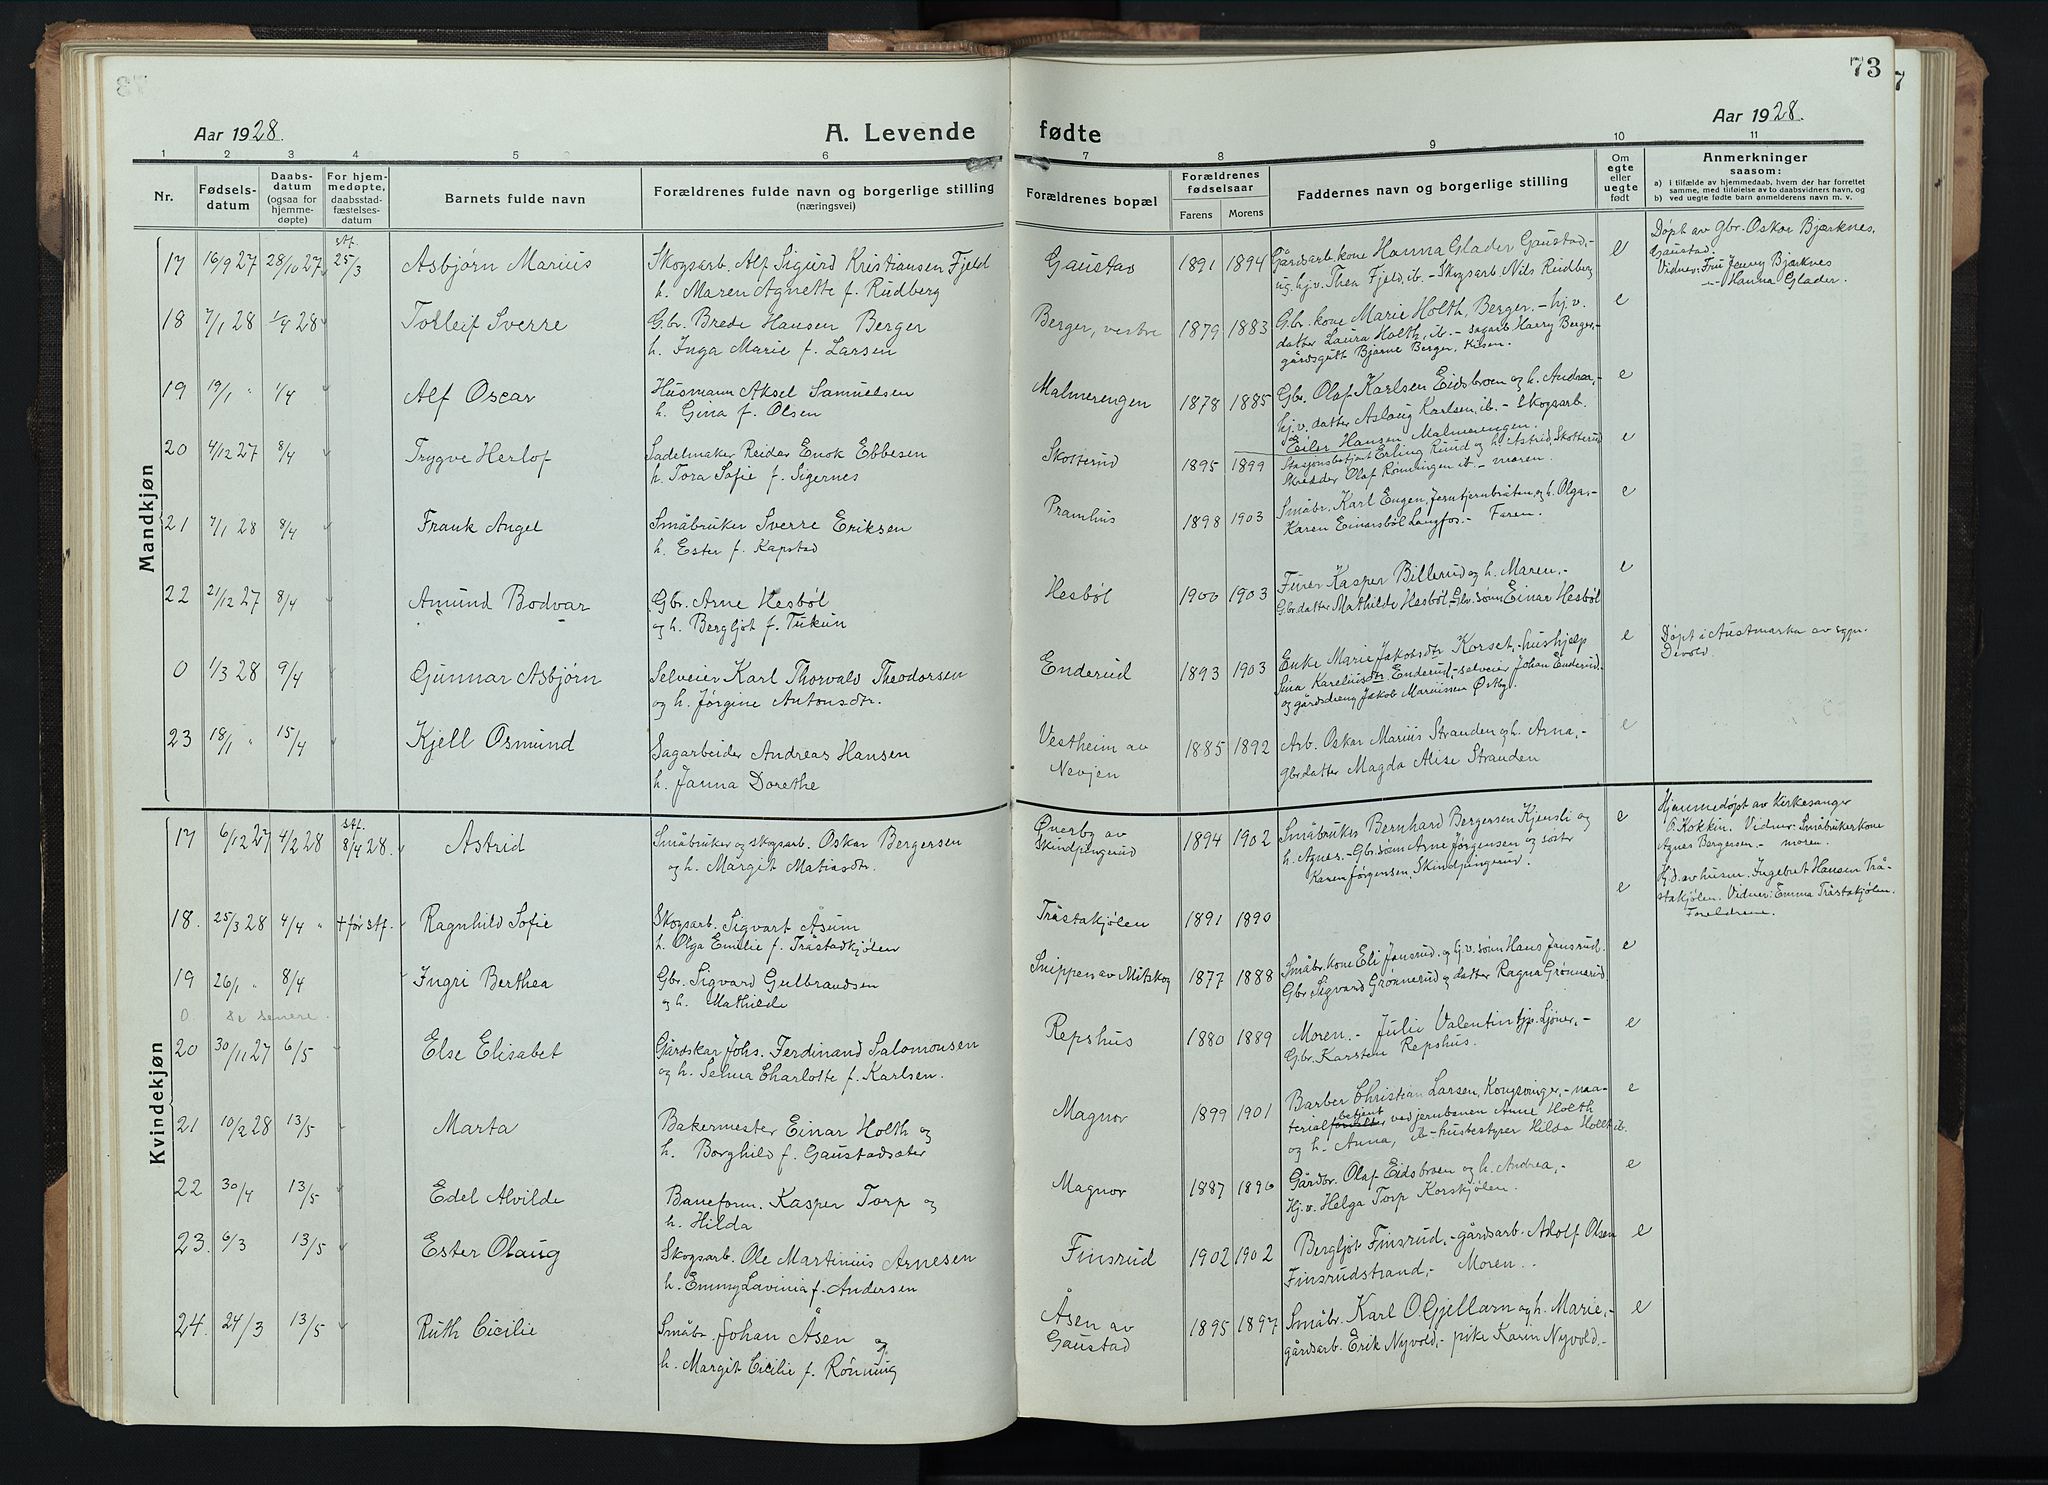 73
Aar 1928.
A. Levende fødte
Aar 1928.
1 2 3 4 5 6 7 8 9 10 11
Nr.
Fødsels-
datum
Daabs-
datum
(ogsaa for
hjemme-
døpte)
For hjem-
medøpte,
daabsstad-
fæstelses-
datum
Barnets fulde navn
Forældrenes fulde navn og borgerlige stilling
(næringsvei)
Forældrenes bopæl
Forældrenes
fødselsaar
Farens Morens
Faddernes navn og borgerlige stilling
Om
egte
eller
uegte
født
Anmerkninger
saasom:
a) i tilfælde av hjemmedaab, hvem der har forrettet
samme, med tilføielse av to daabsvidners navn, og
b) ved uegte fødte barn anmelderens navn m. v.
Mandkjøn
17 16/9 27 28/10 27 stf. 25/3 Asbjørn Marius
Skogsarb. Alf Sigurd Kristiansen Fjeld
h. Maren Agnette f. Rudberg
Gaustad 1891 1894
Gårdsarb. kone Hanna Glader Gaustad,-
ug. hj.v. Thea Fjeld, ib. - Skogsarb. Nils Rudberg
e
Døpt av gbr. Oskar Bjærknes,
Gaustad.
Vidner: Fru Jenny Bjærknes
-"- Hanna Glader.
18 7/1 28 1/4 28 Tolleif Sverre
Gbr. Brede Hansen Berger
h. Inga Marie f. Larsen
Berger, vestre 1879 1883
Gbr. kone Marie Holth, Berger. - hj.v.
datter Laura Holth, ib. - sagarb. Harry Berger,-
gårdsgutt Bjarne Berger,
e
19 19/1 " 1/4 Alf Oscar
Husmann Aksel Samuelsen
h. Gina f. Olsen
Malmerengen 1878 1885
Gbr. Olaf Karlsen Eidsbroen og h. Andrea,-
hj.v. datter Aslaug Karlsen, ib. - Skogsarb.
Eiler Hansen Malmerengen.
e
20 4/12 27 8/4 Trygve Herlof
Sadelmaker Reidar Enok Ebbesen
h. Tora Sofie f. Sigernes
Skotterud 1895 1899
Stasjonsbetjent Erling Ruud og h. Astrid, Skotterud
Skredder Olaf Rønningen ib. - moren.
e
21 7/1 28 8/4 Frank Angel
Småbruker Sverre Eriksen
h. Ester f. Kapstad
Pramhus 1898 1903
Småbr. Karl Engen, Jerntjernbråten, og h. Olga,-
Karen Emarsbøl Langfos.- Faren.
e
22 21/12 27 8/4 Amund Bodvar
Gbr. Arne Hesbøl
og h. Bergljot f. Tukun
Hesbøl 1900 1903
Furer Kasper Billerud og h. Maren,-
Gbr.datter Mathilde Hesbøl,-Gbr. sønn Einar Hesbøl
e
0 1/3 28 9/4 Gunnar Asbjørn
Selveier Karl Thorvald Theodorsen
og h. Jørgine Antonsdtr.
Enderud 1893 1903
Enke Marie Jakobsdtr Korset,-hushjelp
Sina Kareliusdtr. Enderud,-selveier Johan Enderud.-
og gårdsdreng Jakob Mariussen Østby.
e
Døpt i Austmarka av sgpr.
Devold.
23 18/1 " 15/4 Kjell Osmund
Sagarbeider Andreas Hansen
h. Janna Dorethe
Vestheim av
Nevjen
1885 1892
Arb. Oskar Marius Stranden og h. Arna,-
gbr.datter Magda Alise Stranden
e
Kvindekjøn
17 6/12 27 4/2 28 stf. 8/4 28. Astrid
Småbruker og skogsarb. Oskar Bergersen
og h. Margit Matiasdtr.
Øuerby av
Skindpingerud
1894 1902
Småbruker Bernhard Bergersen Kjensli og
h. Agnes.- Gbr. sønn Arne Jørgensen og søster
Karen Jørgensen, Skindpingerud.
e
Hjemmedøpt av Kirkesanger
O. Kokkin. Vidner: Småbrukerkone
Agnes Bergersen.- moren.
18. 25/3 28 4/4 " + før stf. Ragnhild Sofie
Skogsarb. Sigvart Åsum
h. Olga Emilie f. Tråstadkjølen
Tråstakjølen 1891 1890
e
Hj.d. av husm. Ingebret Hansen Trå-
stakjølen. Vidner: Emma Tråstakjølen.
Foreldrene.
19 26/1 " 8/4 Ingri Berthea
Gbr. Sigvard Gulbrandsen
og h. Mathilde
Snippen av Mitskog 1877 1888
Småbr. kone Eli Jansrud. og Gv. sønn Hans Jansrud.
Gbr. Sigvard Grønnerud og datter Ragna Grønnerud.
e
0. Se senere.
20 30/11 27 6/5 Else Elisabet
Gårdskar Johs. Ferdinand Salomonsen
og h. Selma Charlotte f. Karlsen.
Repshus 1880 1889
Moren.- Julie Valentin Ljøner,-
Gbr. Karsten Repshus.
e
21 10/2 28 13/5 Marta
Bakermester Einar Holth og
h. Borghild f. Gaustadsæter
Magnor 1899 1901
Barber Christian Larsen, Kongsvinger,- ma-
terialbetjent ved jernbanen Arne Holth
og h. Anna, ib.-hustestyrer Hilda Holth ib.
e
22 30/4 13/5 Edel Alvilde
Baneform. Kasper Torp og
h. Hilda
Magnor 1887 1896
Gårdbr. Olaf Eidsbroen og h. Andrea,-
Hj.v. Helga Torp Korskjølen.
e
23. 6/3 13/5 Ester Olaug
Skogsarb. Ole Martinius Arnesen
h. Emmy Lavinia f. Andersen
Finsrud 1902 1902
Bergljot Finsrud,-gårdsarb. Adolf Olsen
Finsrudstrand,- Moren..
e
24. 24/3 13/5 Ruth Cicilie
Småbr. Johan Åsen og
h. Margit Cicilie f. Rønning
Åsen av
Gaustad
1895 1897
Småbr. Karl O Gjellarn og h. Marie,-
gårdsarb. Erik Nyvold,- pike Karen Nyvold.-
e